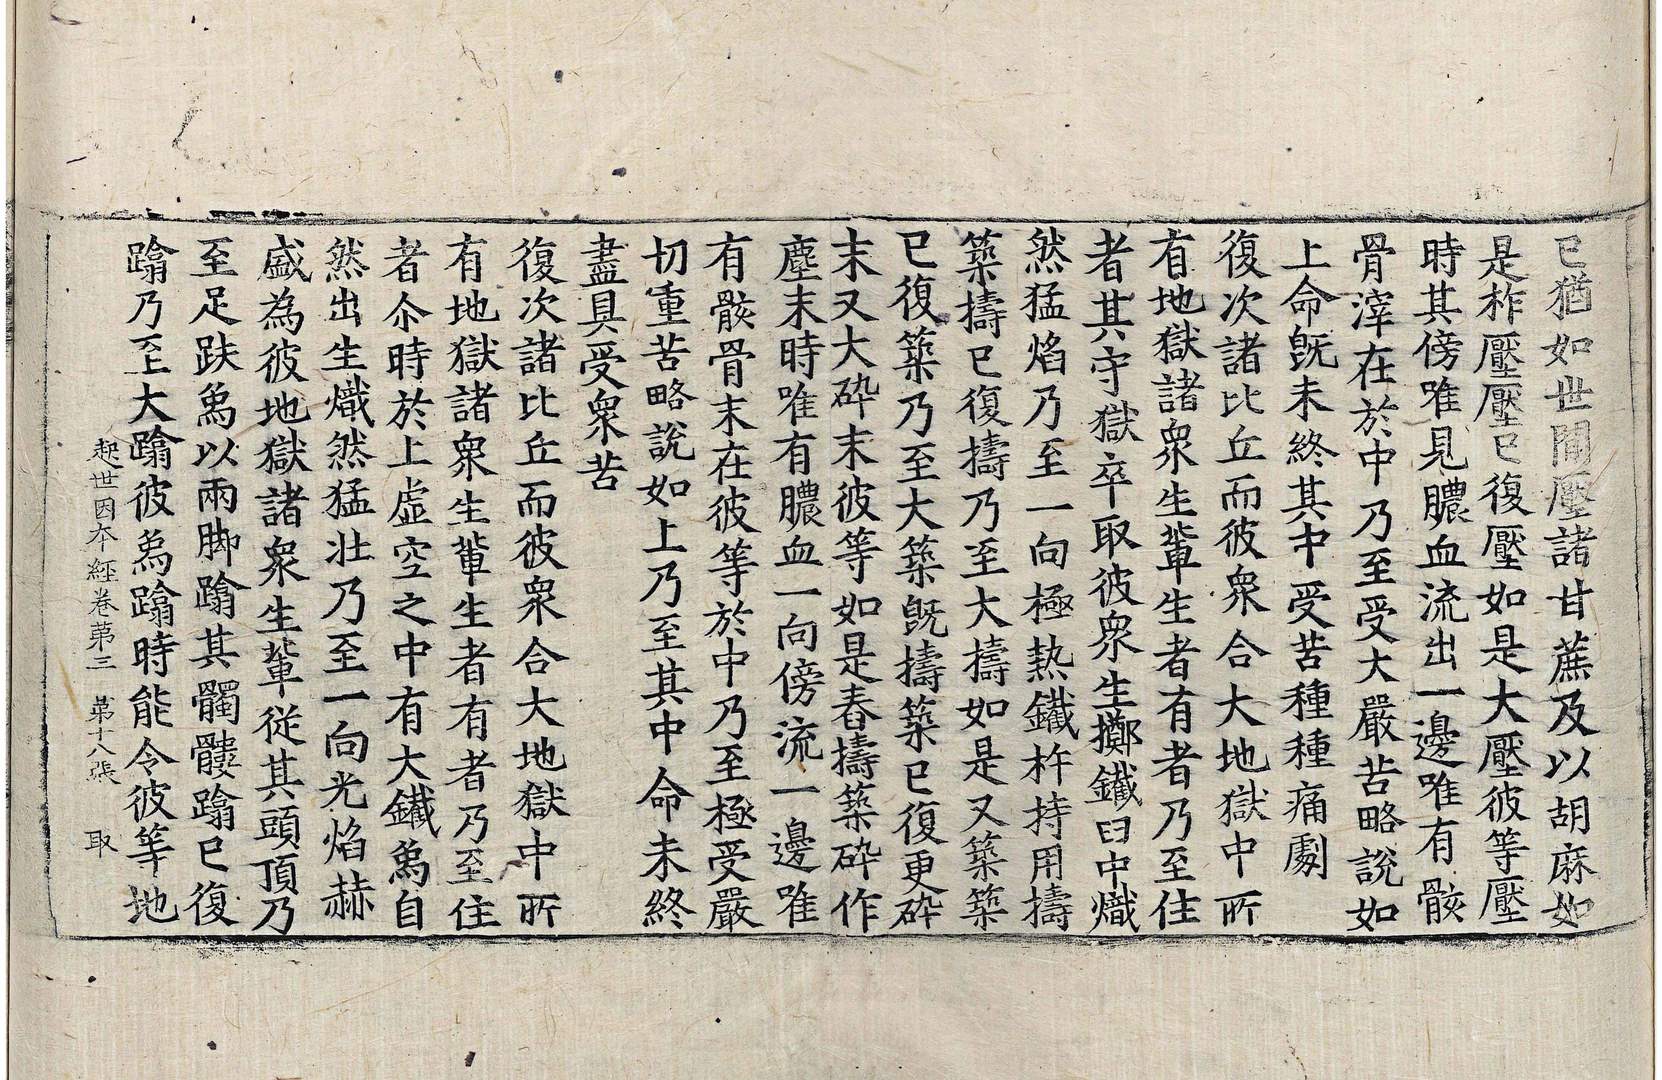 已猶如世間壓諸甘蔗及以胡麻如
是柞壓壓已復壓如是大壓彼等壓
時其傍唯見膿血流出一邊唯有骸
骨滓在於中乃至受大嚴苦略說如
上命旣未終其中受苦種種痛劇
復次諸比丘而彼衆合大地獄中所
有地獄諸衆生輩生者有者乃至住
者其守獄卒取彼衆生擲鐵臼中熾
然猛焰乃至一向極熱鐵杵持用擣
築擣已復擣乃至大擣如是又築築
已復築乃至大築旣擣築已復更碎
末又大碎末彼等如是舂擣築碎作
塵末時唯有膿血一向傍流一邊唯
有骸骨末在彼等於中乃至極受嚴
切重苦略說如上乃至其中命未終
盡具受衆苦
復次諸比丘而彼衆合大地獄中所
有地獄諸衆生輩生者有者乃至住
者尒時於上虛空之中有大鐵爲自
然出生熾然猛壯乃至一向光焰赫
盛為彼地獄諸衆生輩從其頭頂乃
至足趺爲以兩脚蹹其髑髏蹹已復
蹹乃至大蹹彼爲蹹時能令彼等地
起世因夲經卷第三 第十八張 取